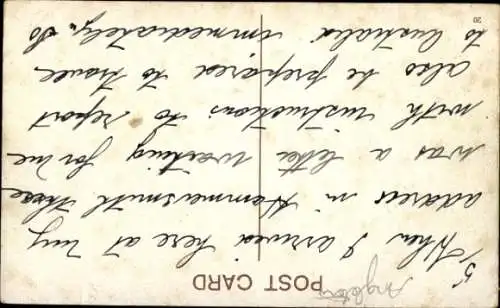 POST CARD
5/ When I arrived here at my
address in Hammersmith there
was a letter waiting for me
with instructions to report
also be prepared to travel
to Australia immediately. So
20